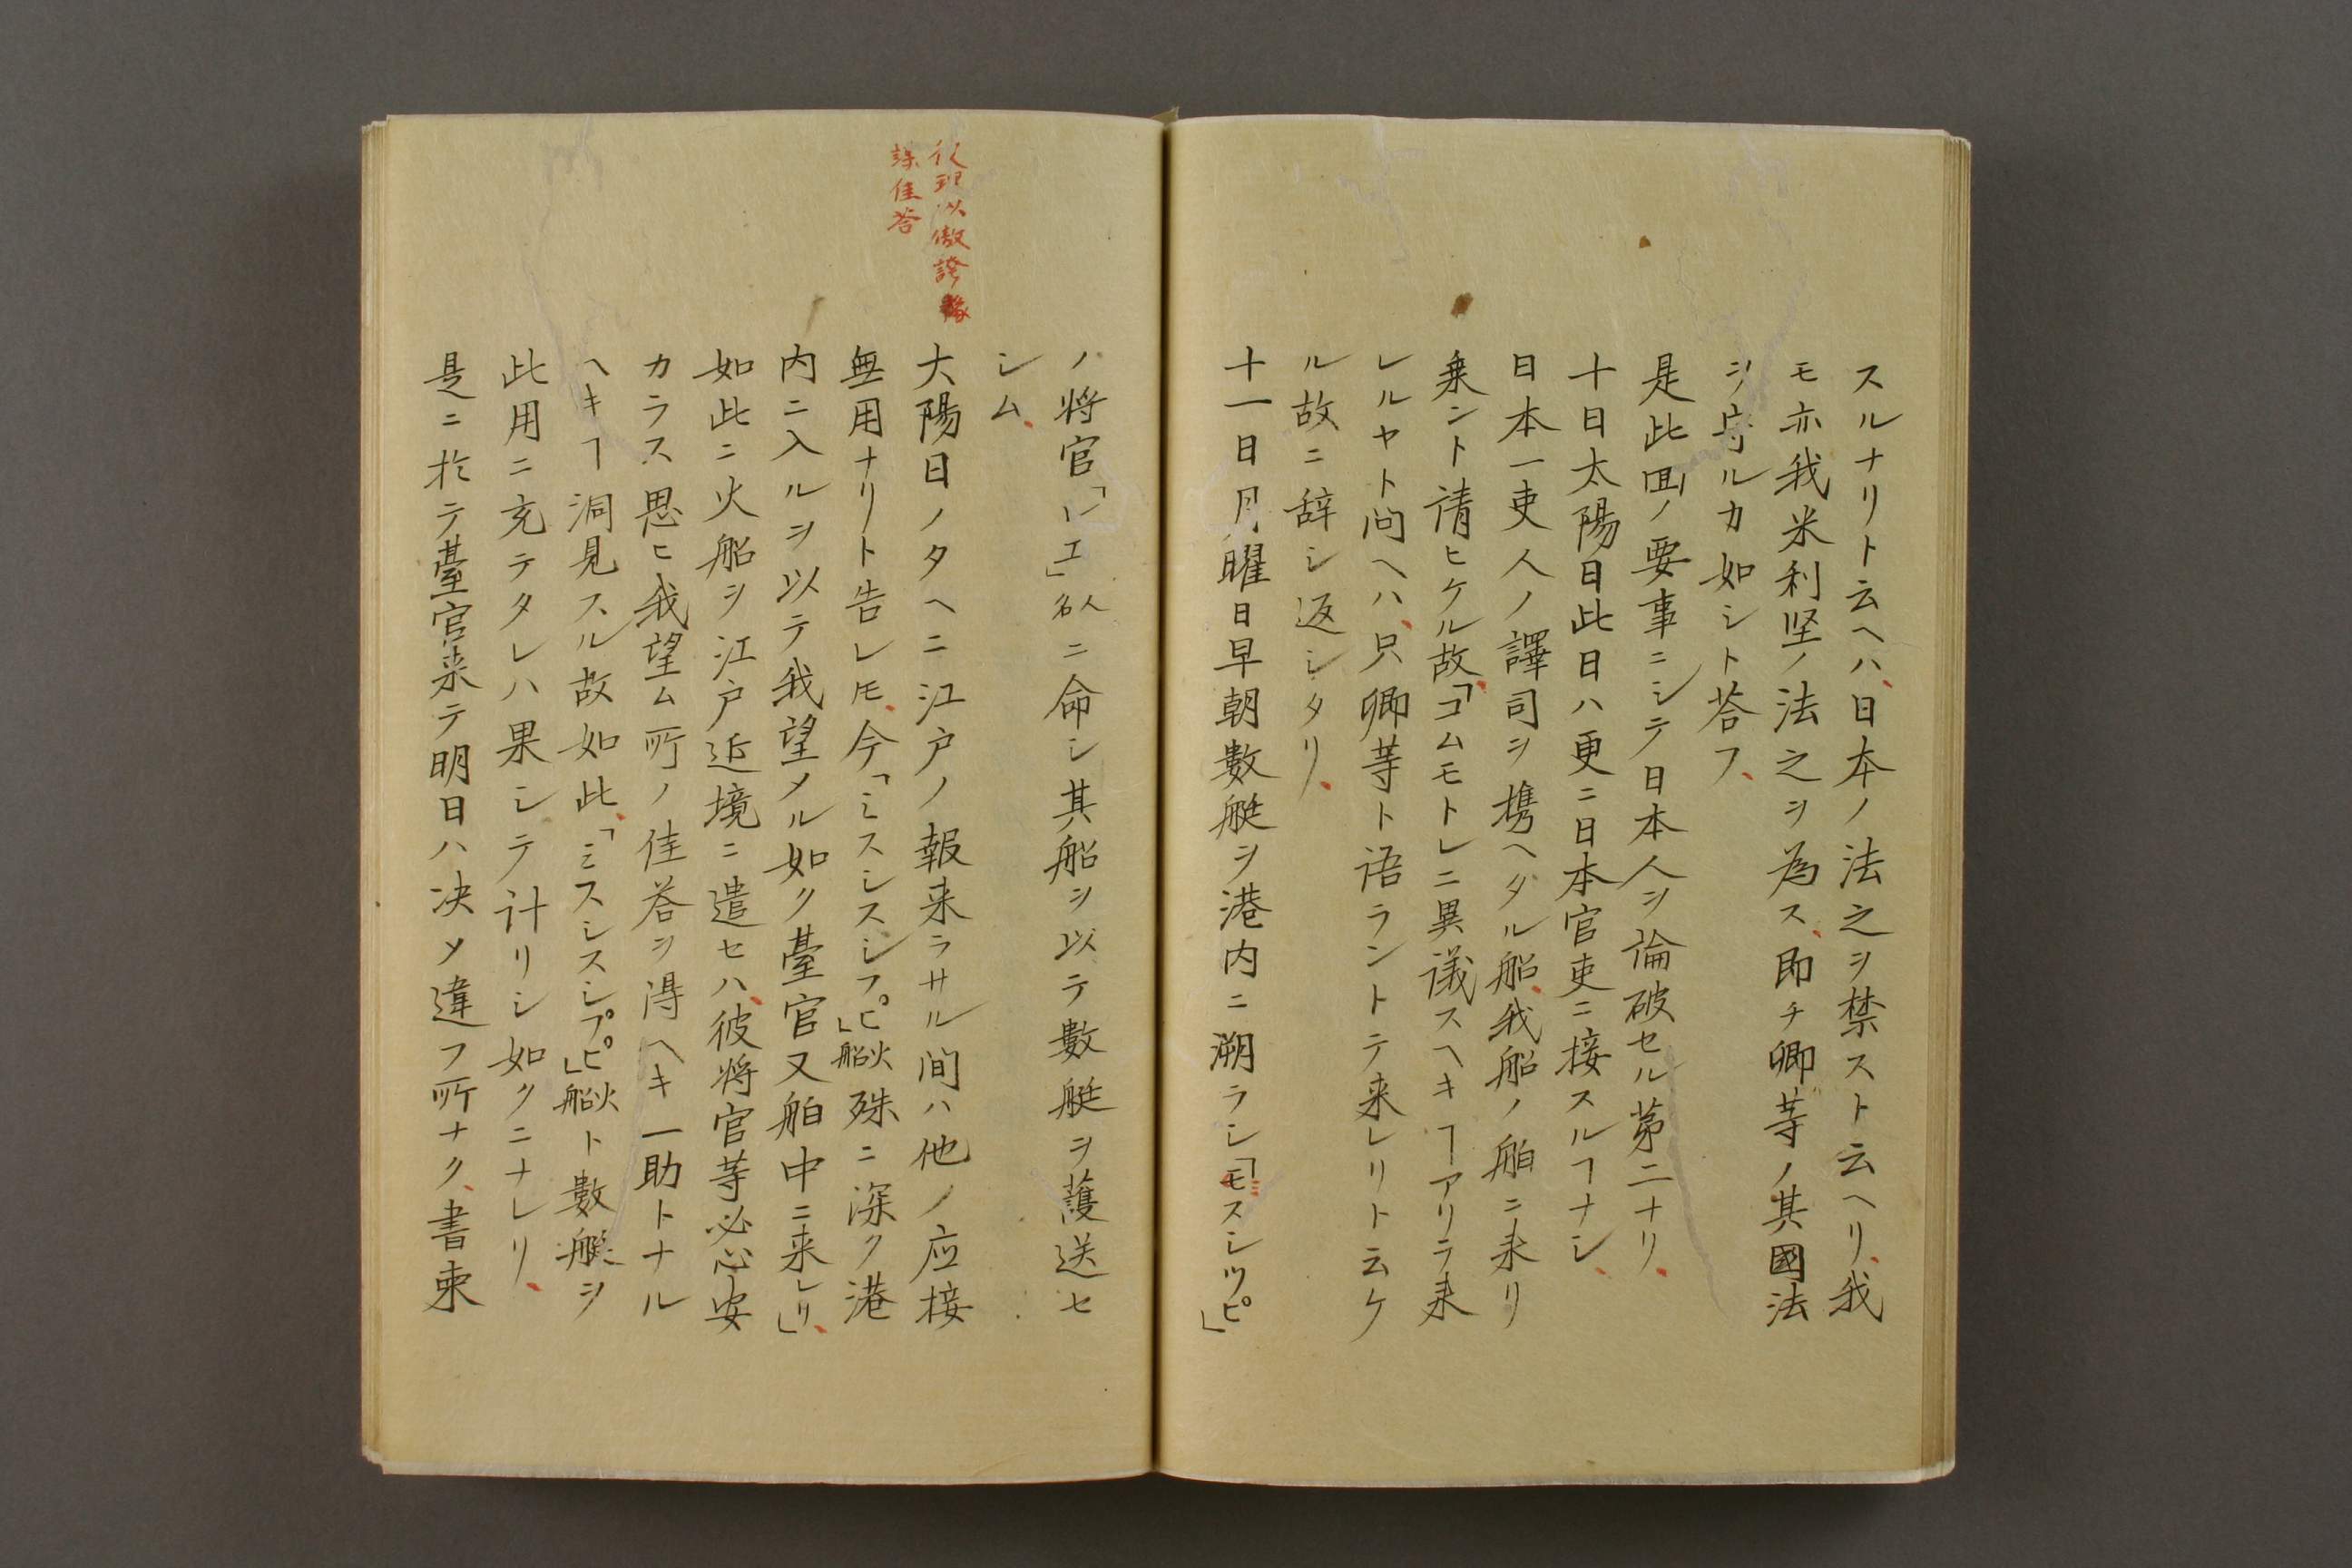 スルナリト云ヘハ、日本ノ法之ヲ禁スト云ヘリ、我
モ亦我米利堅ノ法之ヲ為ス、即チ卿等ノ其國法
ヲ守ルカ如シト荅フ、
是此回ノ要事ニシテ日本人ヲ論破セル第二ナリ、
十日太陽日此日ハ更ニ日本官吏ニ接スルヿナシ、
日本一吏人ノ譯司ヲ携ヘタル船、我船ノ舶ニ来リ
乗ント請ヒケル故、「コムモトレニ異議スヘキヿアリテ来
レルヤト問ヘハ、只卿等ト語ラントテ来レリト云ケ
ル故ニ辞シ返シタリ、
十一日月曜日早朝數艇ヲ港内ニ溯ラシ「モスシツピ」
ノ将官「レエ」人名ニ命シ其船ヲ以テ數艇ヲ護送セ
シム、
大陽日ノタヘニ江戸ノ報来ラサル間ハ他ノ应接
無用ナリト告レ𪜈、今「ミスシスシフピ」火船殊ニ深ク港
内ニ入ルヲ以テ我望メル如ク臺官又舶中ニ来レリ」、
如此ニ火船ヲ江戸近境ニ遣セハ、彼将官等必心安
カラス思ヒ我望ム所ノ佳荅ヲ得ヘキ一助トナル
ヘキヿ洞見スル故如此、「ミスシスシプピ」火船ト數艇ヲ
此用ニ充テタレハ果シテ計リシ如クニナレリ、
是ニ於テ臺官来テ明日ハ决メ違フ所ナク、書柬
彼理以傲誇
謀佳荅